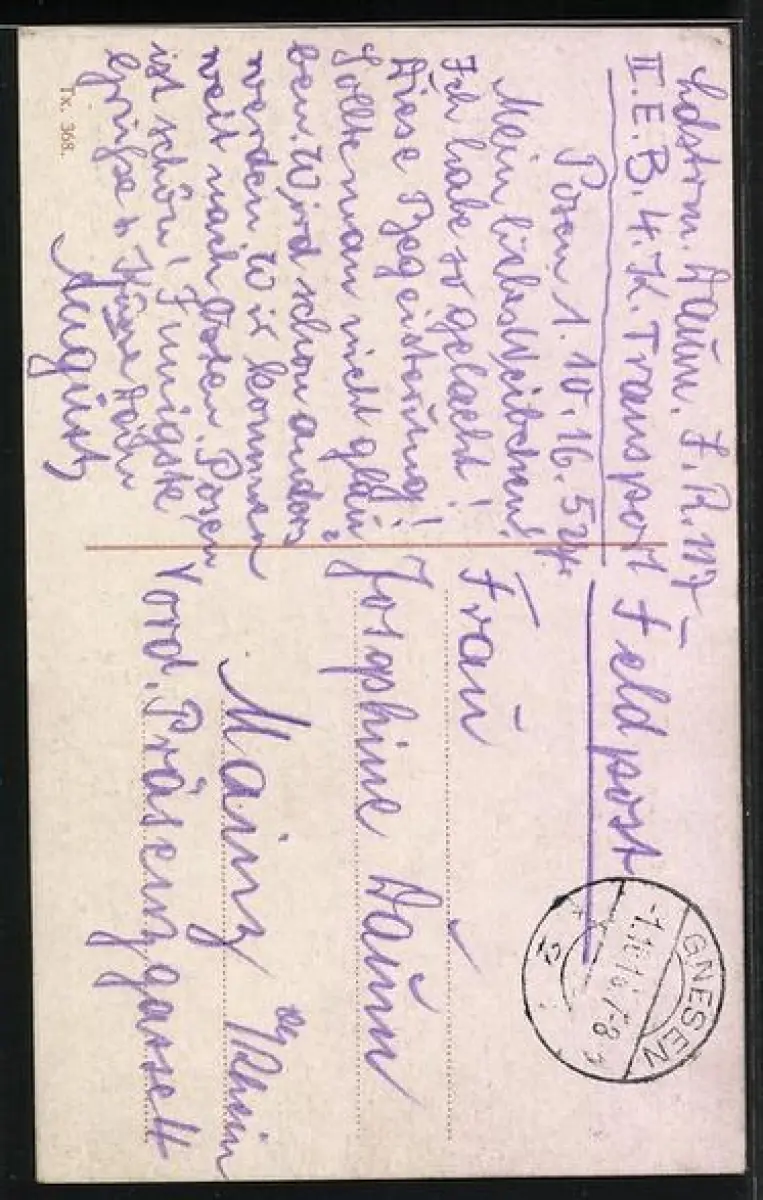 Ldstrm. Daum. I.R.117
II.E.B.4.K. Transport
Feldpost
Posen 1.10.16. 5
Mein liebes Weibchen!
Ich habe so gelacht!
Diese Begeisterung!
Sollte man nicht glau
ben. Wird schon anders
werden. Wir kommen
weit nach Osten. Posen
ist schön! Innigste
Grüße + Küsse Dein
August
Tx. 368.
GNESEN
-1.10.16 7-8
Frau
Josephine Daum
Mainz a/Rhein
Vord. Präsenzgasse